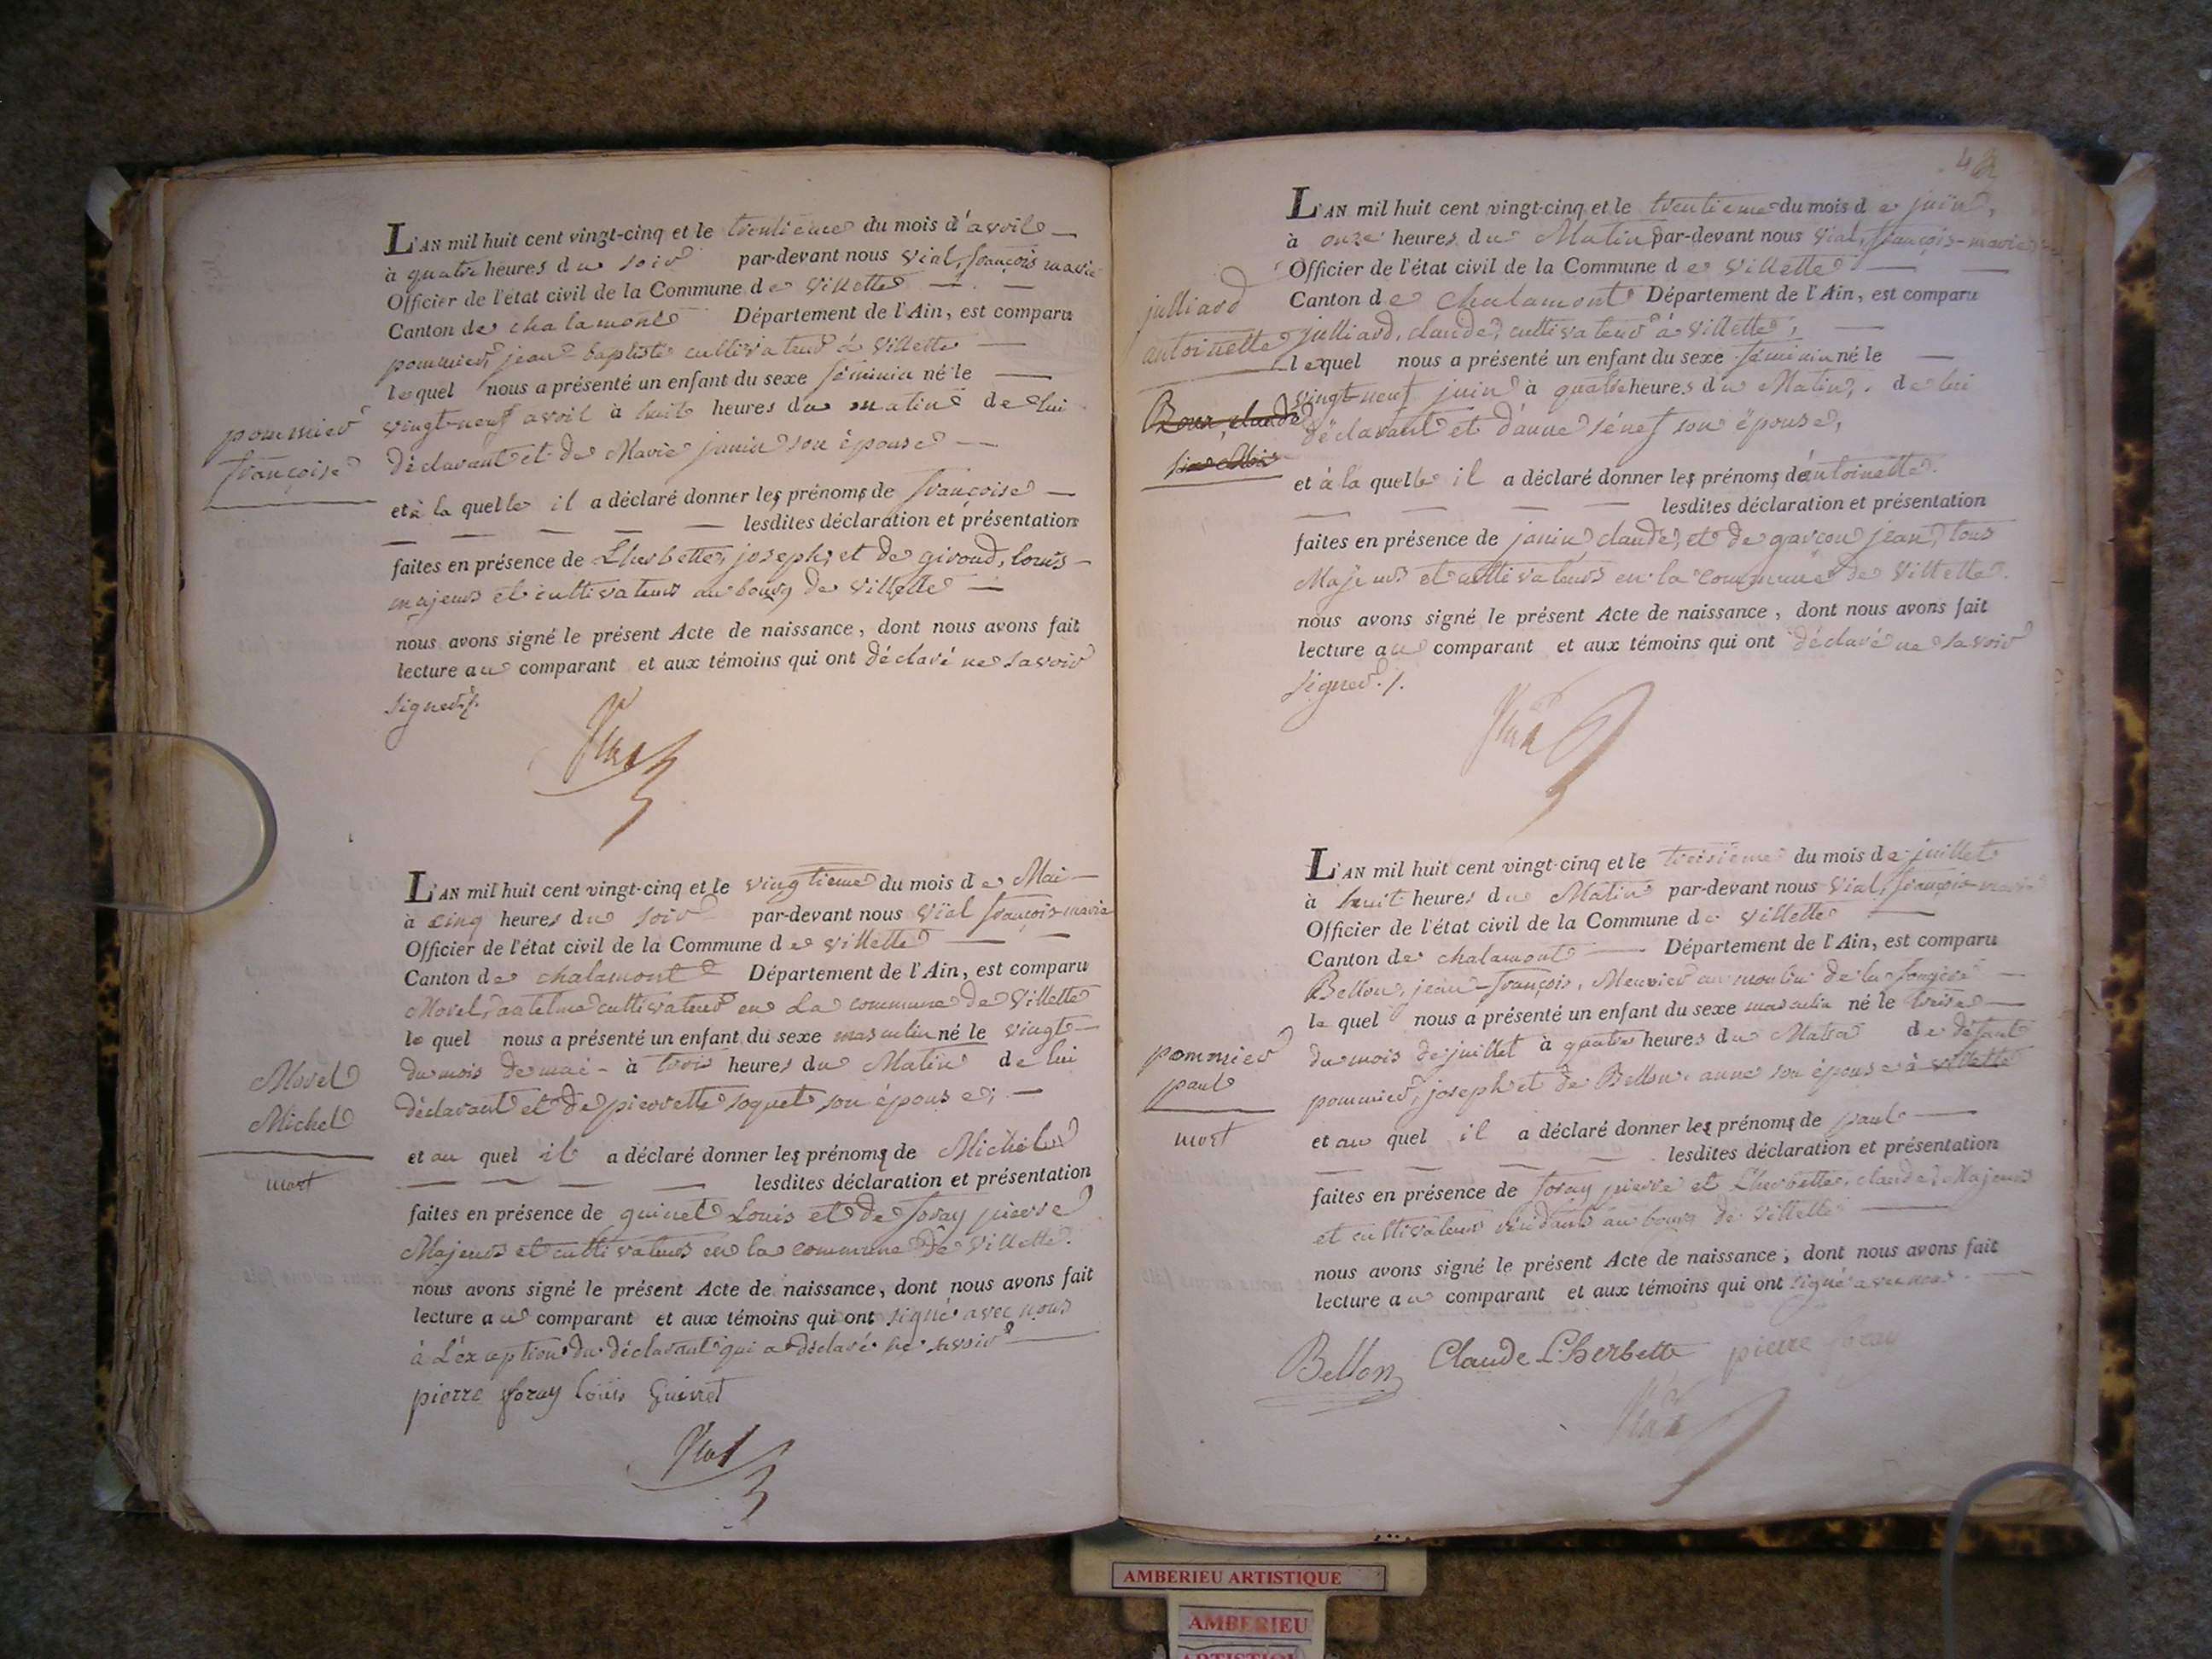 L'AN mil huit cent vingt-cinq et le trentieme du mois d'avril
à quatre heures du soir par-devant nous Vial, françois marie
Officier de l'état civil de la Commune de Villette
Canton de chalamont Département de l'Ain, est comparu
pommier, jean baptiste cultivateur à Villette
lequel nous a présenté un enfant du sexe féminin né le
vingt-neuf avril à huit heures du matin de lui
déclarant et de Marie janin son épouse
et à la quelle il a déclaré donner les prénoms de françoise
lesdites déclaration et présentation
faites en présence de Lherbette, joseph, et de giroud, louis
majeurs et cultivateurs au bourg de Villette
nous avons signé le présent Acte de naissance, dont nous avons fait
lecture au comparant et aux témoins qui ont déclaré ne savoir
signer
pommier
françoise
Vial
L'AN mil huit cent vingt-cinq et le vingtieme du mois de Mai
à cinq heures du soir par-devant nous Vial françois-marie
Officier de l'état civil de la Commune de Villette
Canton de chalamont Département de l'Ain, est comparu
Morel, antelme cultivateur en La commune de Villette
le quel nous a présenté un enfant du sexe masculin né le vingt
du mois de mai à trois heures du Matin de lui
déclarant et de pierrette soquet son épouse;
et au quel il a déclaré donner les prénoms de Michel
lesdites déclaration et présentation
faites en présence de guinet Louis et de foray pierre
Majeurs et cultivateurs en la commune de Villette.
nous avons signé le présent Acte de naissance, dont nous avons fait
lecture au comparant et aux témoins qui ont signé avec nous
à L'exception du déclarant qui a déclaré ne savoir
Morel
Michel
mort
pierre foray louis Guinet
Vial
42
L'AN mil huit cent vingt-cinq et le trentieme du mois de juin,
à onze heures du Matin par-devant nous Vial, françois-marie
Officier de l'état civil de la Commune de Villette
Canton de Chalamont Département de l'Ain, est comparu
julliard, claude, cultivateur à Villette,
lequel nous a présenté un enfant du sexe féminin né le
vingt-neuf juin à quatre heures du Matin, de lui
déclarant et d'anne sénef son épouse,
et à la quelle il a déclaré donner les prénoms d'antoinette.
lesdites déclaration et présentation
faites en présence de janin, claude, et de garçon jean, tous
Majeurs et cultivateurs en la commune de Villette.
nous avons signé le présent Acte de naissance, dont nous avons fait
lecture au comparant et aux témoins qui ont déclaré ne savoir
signer./.
julliard
antoinette
claude
Vial
L'AN mil huit cent vingt-cinq et le treisieme du mois de juillet
à huit heures du Matin par-devant nous Vial, françois-marie
Officier de l'état civil de la Commune de Villette
Canton de chalamont Département de l'Ain, est comparu
Bellon, jean-françois, Meunier au moulin de la
le quel nous a présenté un enfant du sexe masculin né le treise
du mois de juillet à quatre heures du Matin de défunt
pommier, joseph et de Bellon, anne son épouse à villette
et au quel il a déclaré donner les prénoms de paul
lesdites déclaration et présentation
faites en présence de foray pierre et Lherbette, claude, Majeurs
et cultivateurs résidant au bourg de Villette
nous avons signé le présent Acte de naissance, dont nous avons fait
lecture au comparant et aux témoins qui ont signé avec nous.
pommier
paul
mort
Bellon Claude Lherbette pierre foray
Vial
AMBERIEU ARTISTIQUE
AMBERIEU
ARTISTIQUE